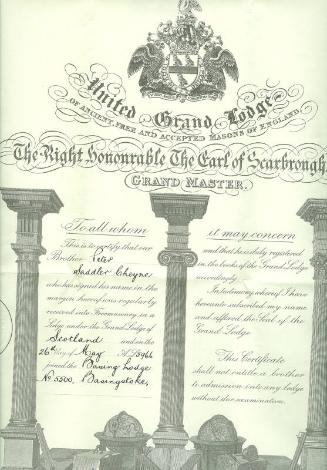 United Grand Lodge
OF ANCIENT, FREE AND ACCEPTED MASONS OF ENGLAND.
The Right Honourable The Earl of Scarbrough
GRAND MASTER.
To all whom
This is to certify that our
Brother Peter
Saddler Cheyne
who has signed his name in the
margin hereof was regularly
received into Freemasonry in a
Lodge under the Grand Lodge of
Scotland and on the
26th day of May A.D. 1966
joined the Basing Lodge
No 5500, Basingstoke,
it may concern
and that he is duly registered
in the books of the Grand Lodge
accordingly.
In testimony whereof I have
hereunto subscribed my name
and affixed the Seal of the
Grand Lodge
This Certificate
shall not entitle a brother
to admission into any lodge
without due examination.